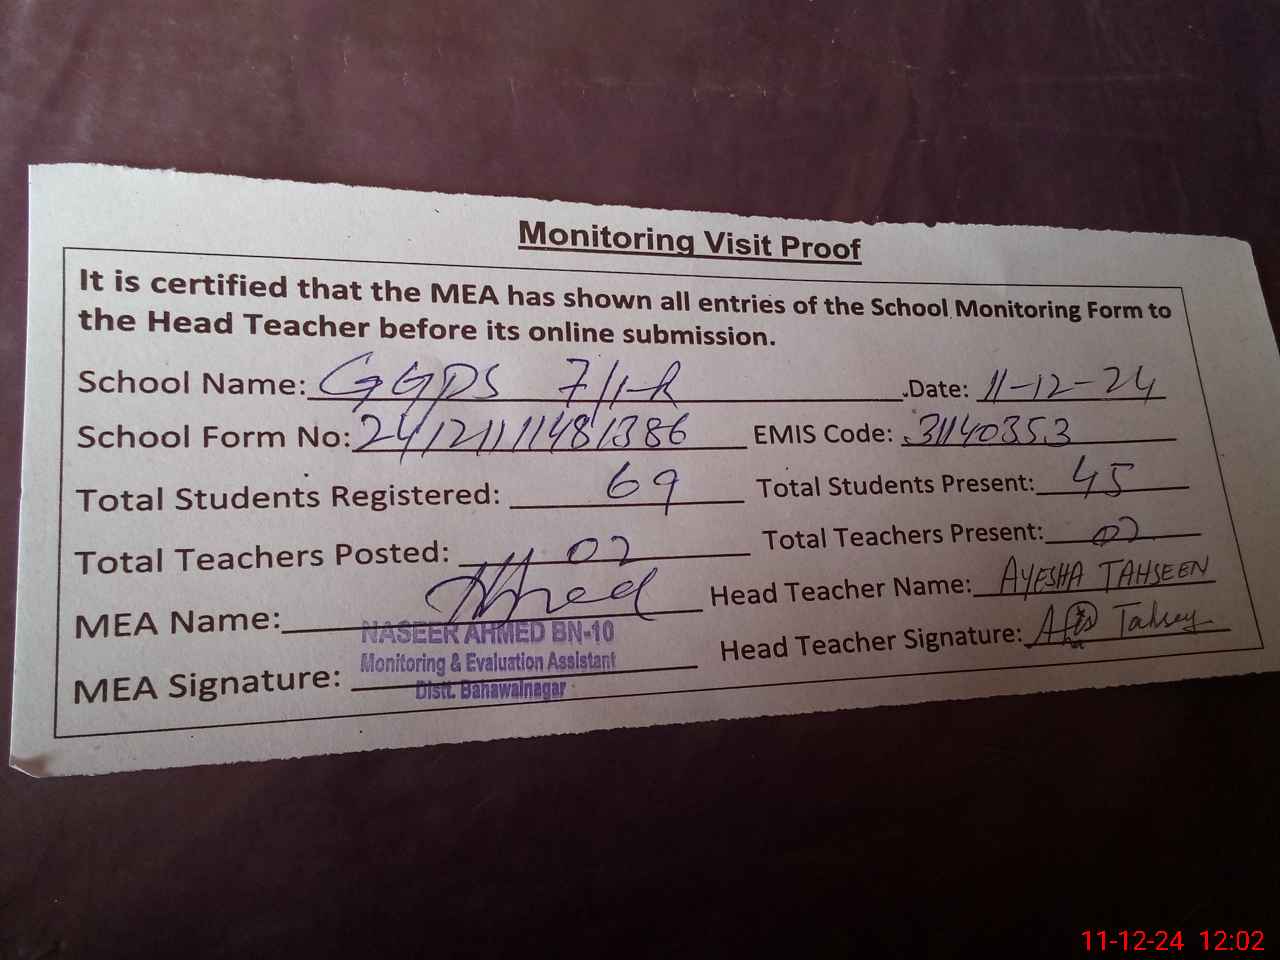 Monitoring Visit Proof
It is certified that the MEA has shown all entries of the School Monitoring Form to
the Head Teacher before its online submission.
School Name: GGPS 7/1-R Date: 11-12-24
School Form No: EMIS Code: 31140353
Total Students Registered: 69 Total Students Present: 45
Total Teachers Posted: 02 Total Teachers Present: 02
MEA Name: Head Teacher Name: AYESHA TAHSEEN
NASEER AHMED BN-10
Monitoring & Evaluation Assistant
MEA Signature: Head Teacher Signature:
Distt. Bahawalnagar
11-12-24 12:02